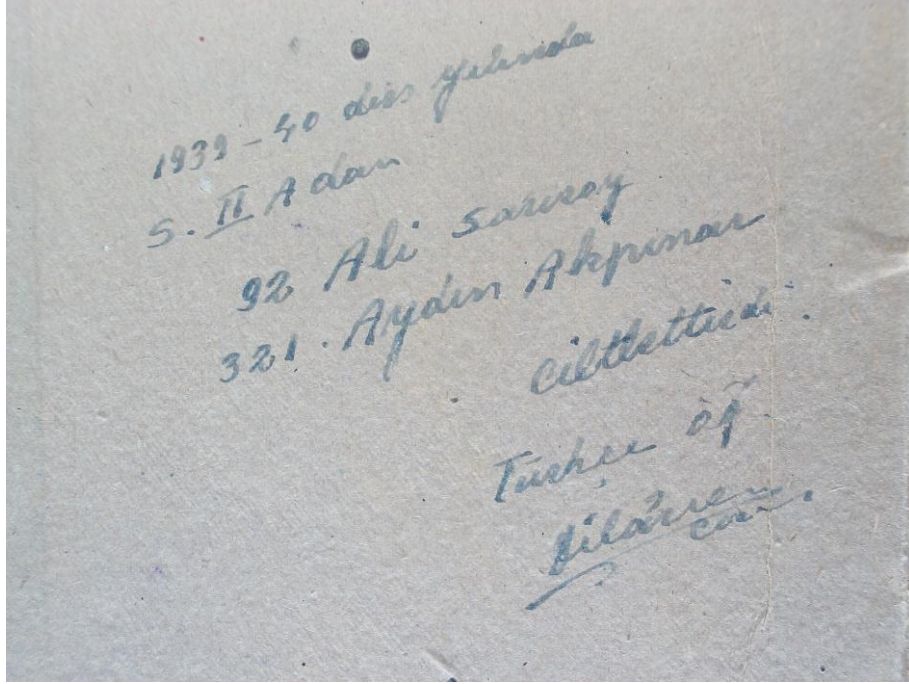 1939-40 ders yılında
S. II A dan
92 Ali Sarısoy
321. Aydın Akpınar
Ciltlettirdi.
Türkçe öğ.